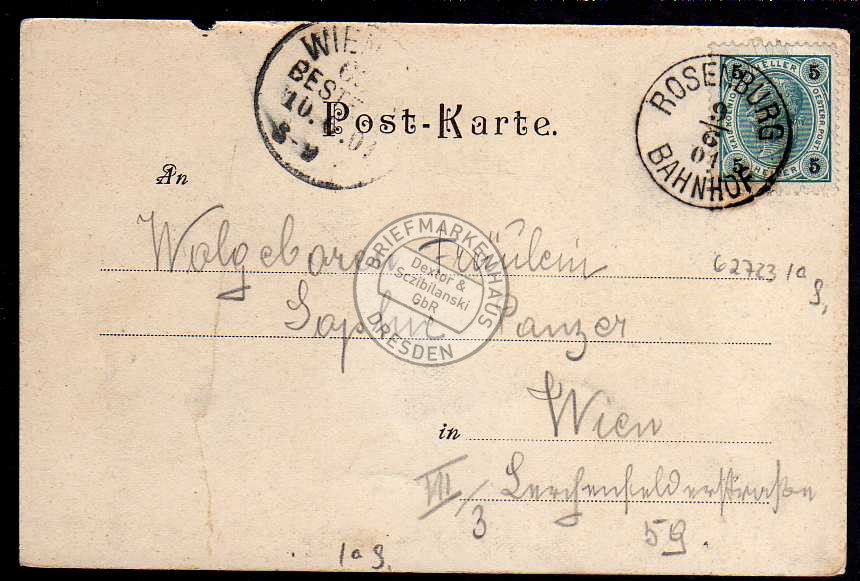 WIEN
BESTE
10. 01
8-9
Post-Karte.
ROSENBURG
9
6
01
BAHNHOF
5 HELLER 5
KAIS. KOENIGL. OESTERR. POST.
5 HELLER 5
An
Wolgeboren Fräulein
62723 1a
S,
Sophie Panzer
BRIEFMARKENHAUS
Dextor &
Sczibilanski
GbR
DRESDEN
in Wien
VII/3 Lerchenfelderstraße
59.
1a S,